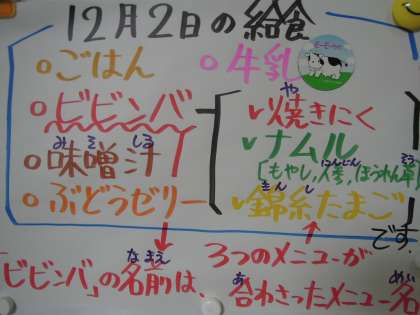 12月2日の給食
ごはん
牛乳
ビビンバ
味噌汁
ぶどうゼリー
焼きにく
ナムル
[もやし,人参,ほうれん草]
錦糸たまご
です
「ビビンバ」の名前は、
3つのメニューが
合わさったメニュー名